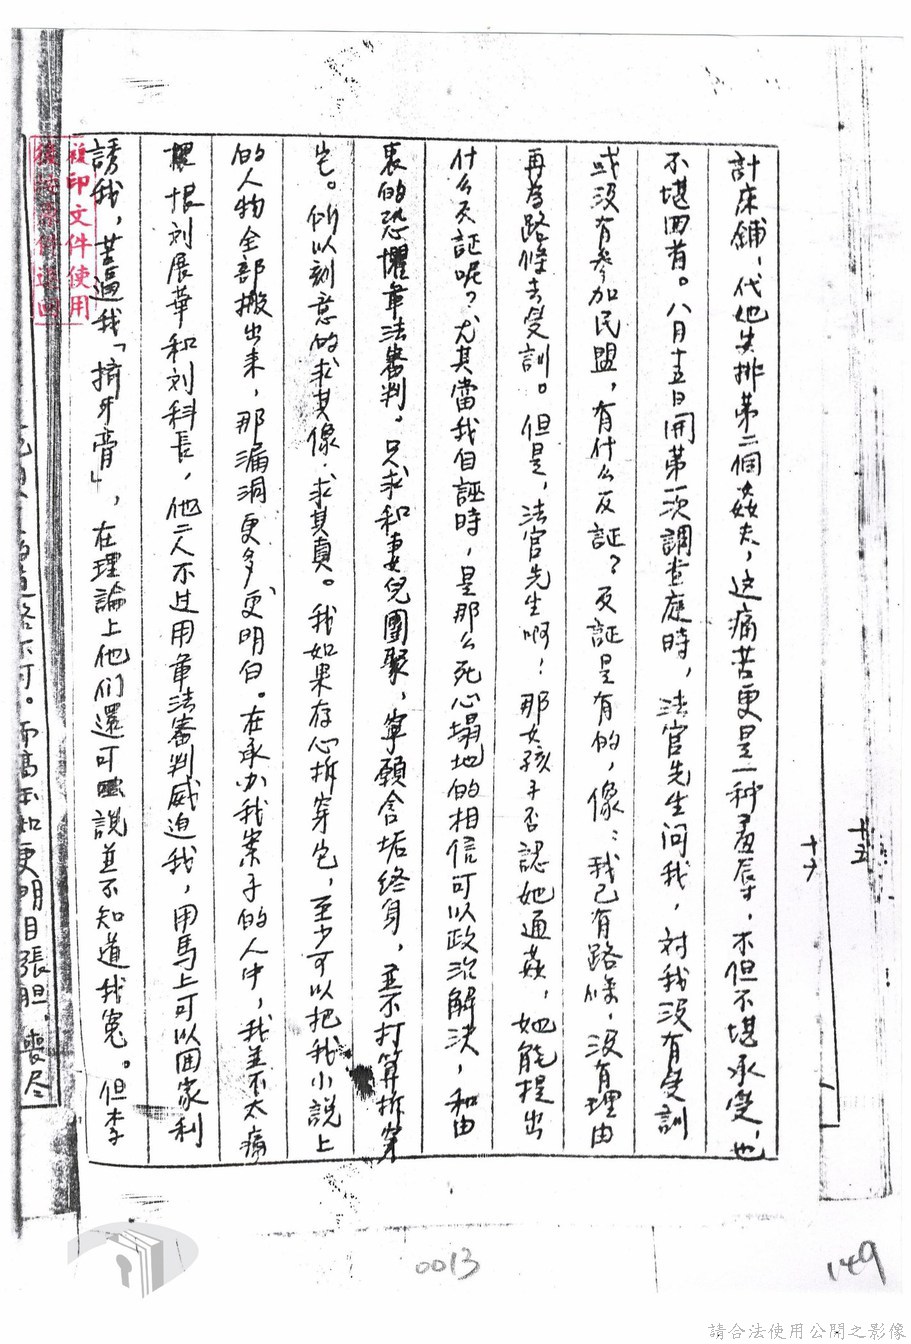 計床鋪,代她安排第二個姦夫,这痛苦更是一种羞辱,不但不堪承受,也
不堪回首。八月十五日開第一次調查庭時,法官先生问我,対我没有受訓
或没有參加民盟,有什么反証?反証是有的,像:我已有路條,没有理由
再為路條去受訓。但是,法官先生啊!那女孩子否認她通姦,她能提出
什么反証呢?尤其當我自誣時,是那么死心塌地的相信可以政治解决,和由
衷的恐懼軍法審判,只求和妻兒團聚,寧願含垢終身,並不打算拆穿
它。所以刻意的求其像.求其真。我如果存心拆穿它,至少可以把我小說上
的人物全部搬出来,那漏洞更多更明白。在承办我案子的人中,我並不太痛
恨刘展華和刘科長,他二人不过用軍法審判威迫我,用馬上可以回家利
誘我,苦逼我「擠牙膏」,在理論上他们還可說並不知道我冤。但李
更明目張胆,喪尽
複印文件使用
十五
十六
0013
149
請合法使用公開之影像